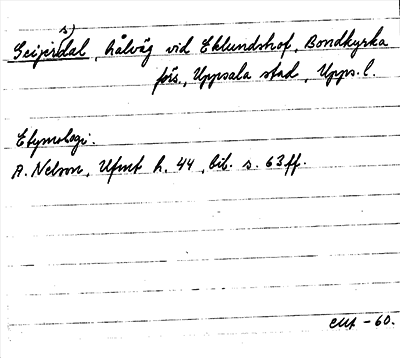 s)
Geijersdal, hålväg vid Eklundshof, Bondkyrka
förs., Uppsala stad, Upps. l.
Etymologi.
A. Nelson, Ufmt h. 44, bil. s. 63 ff.
-60.